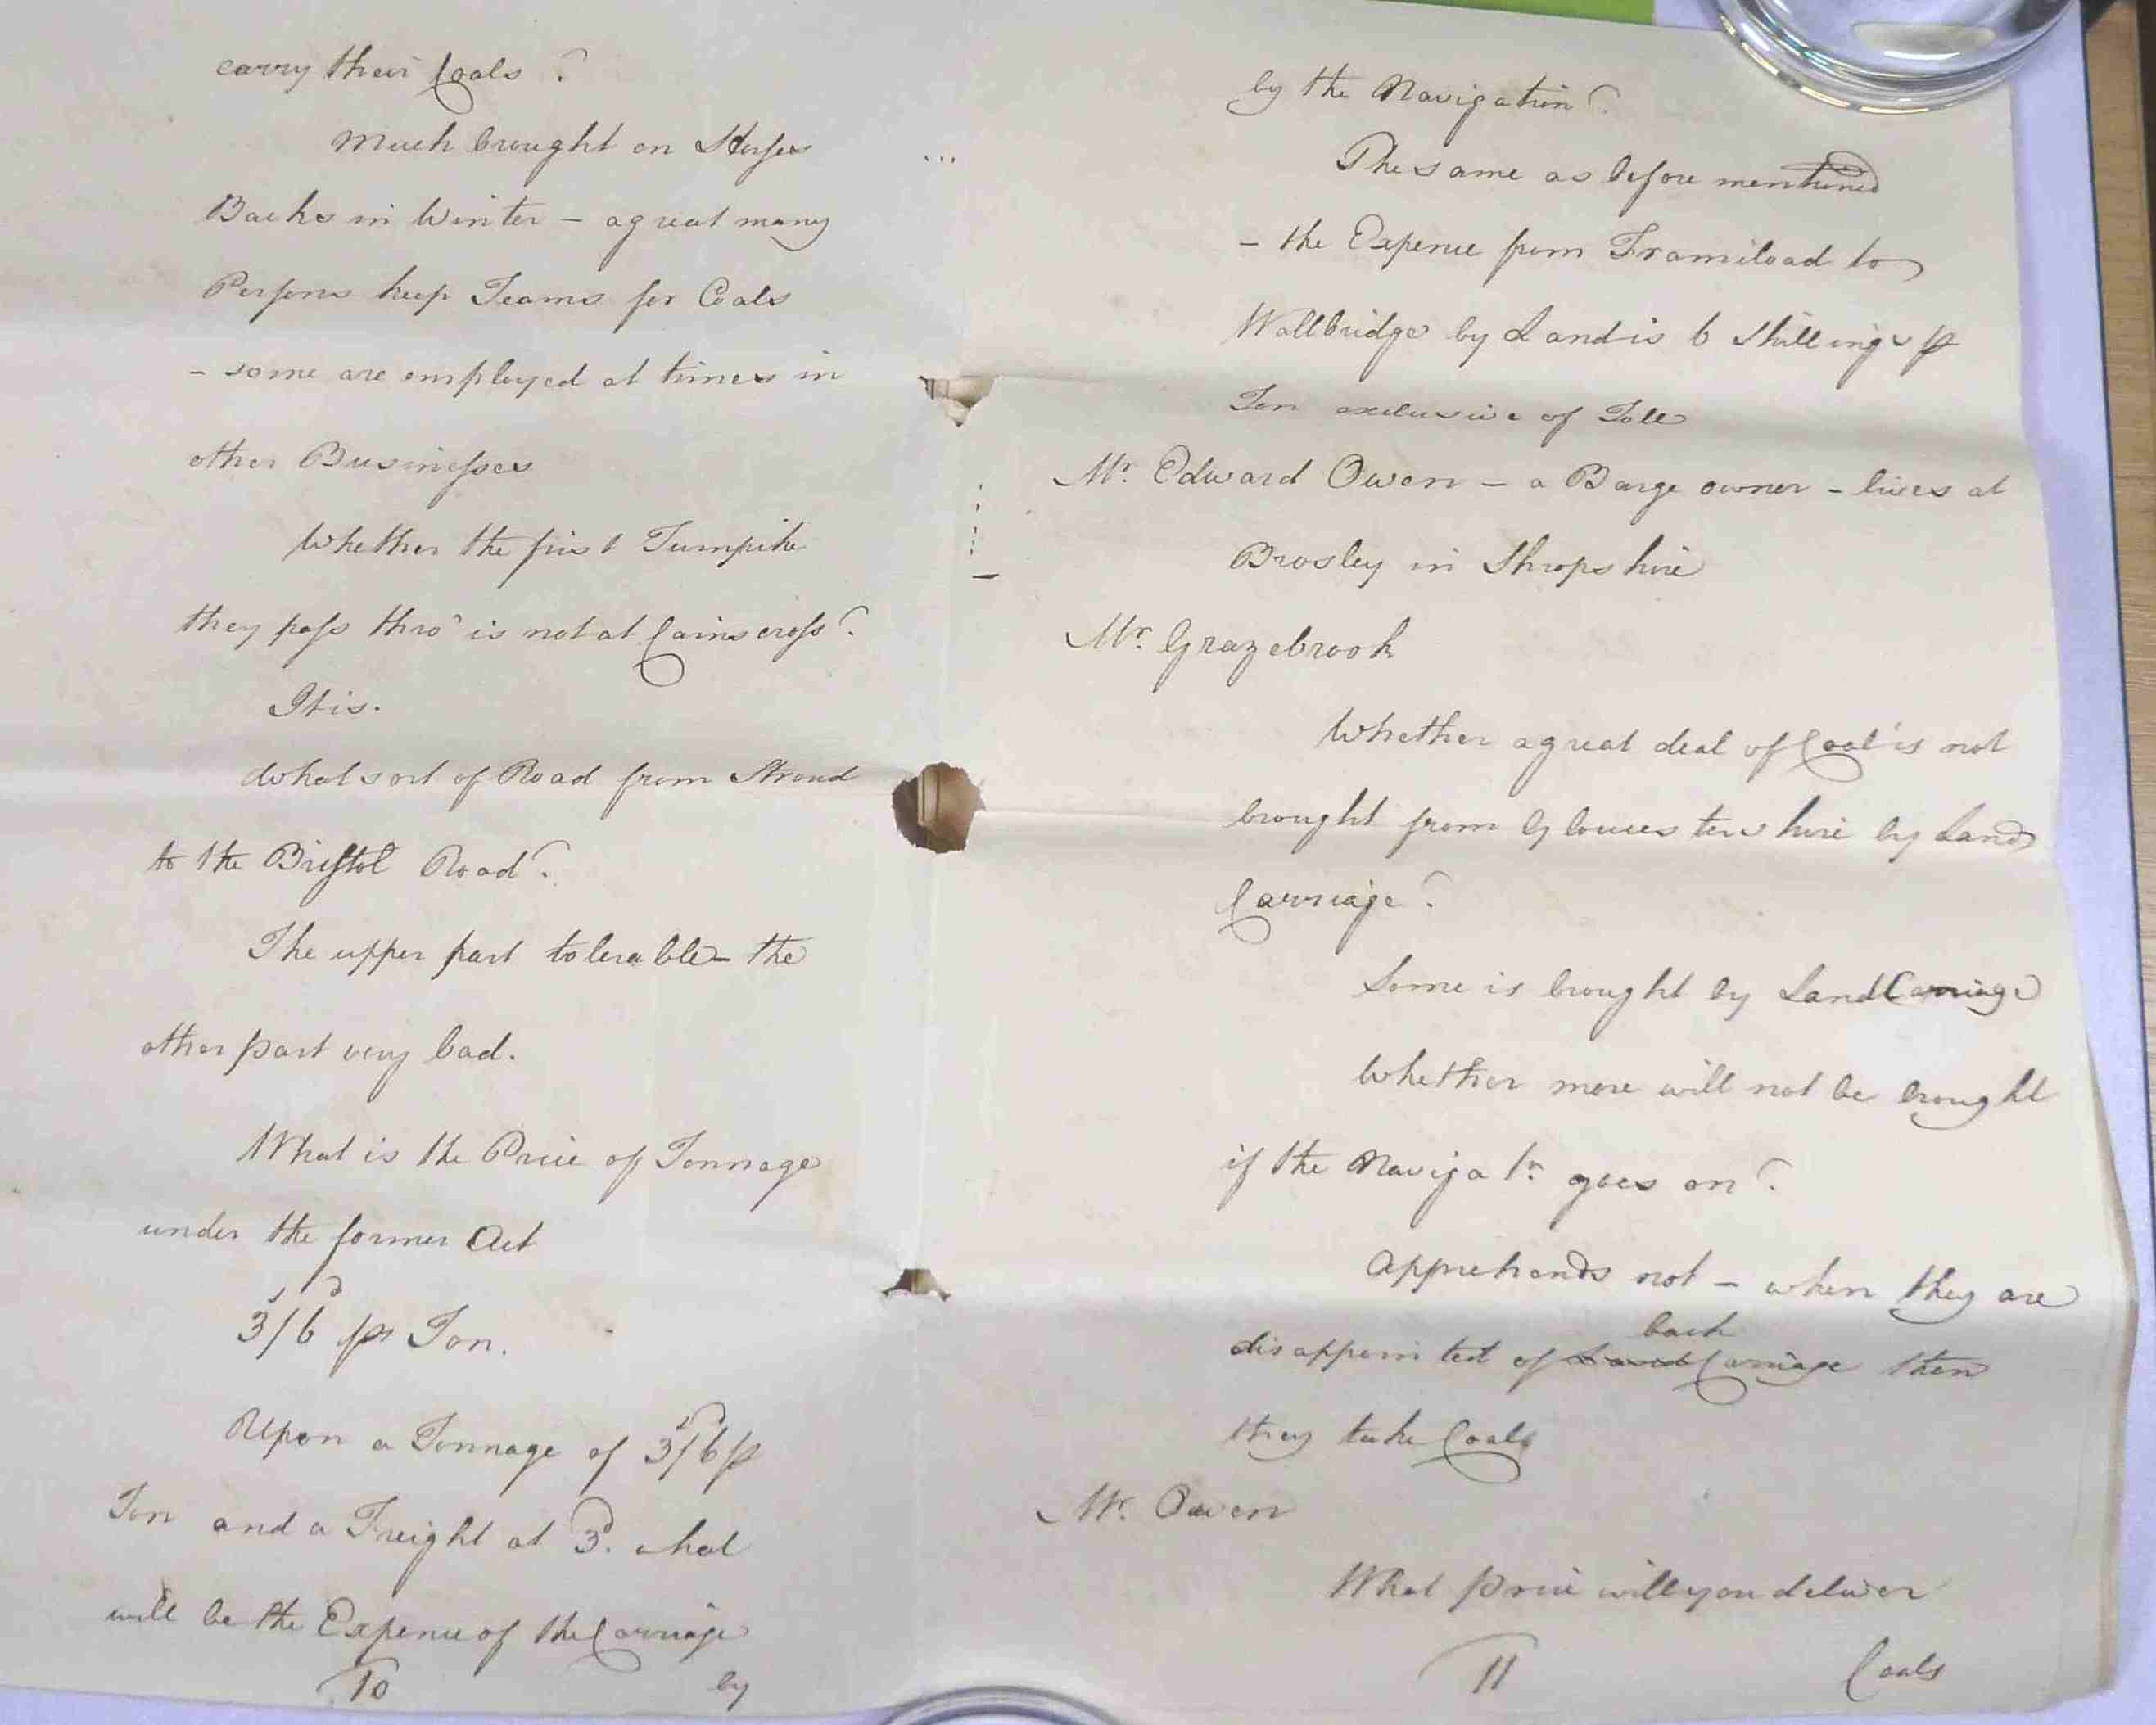 carry their Coals?
Much brought on Horses
Backs in Winter – a great many
Persons keep Teams for Coals
– some are employed at times in
other Businesses
Whether the first Turnpike
they pass thro' is not at Cainscross?
It is.
What sort of Road from Stroud
to the Bristol Road?
The upper part tolerable – the
other part very bad.
What is the Price of Tonnage
under the former Act
3s/6d pr Ton.
Upon a Tonnage of 3s/6d p
Ton and a Freight at 3d. what
will be the Expence of the Carriage
10 by
by the Navigation?
The same as before mentioned
– the Expence from Framiload to
Wallbridge by Land is 6 Shillings p
Ton exclusive of Toll
Mr. Edward Owen – a Barge owner – lives at
Brosley in Shropshire
Mr. Grazebrook
Whether a great deal of Coal is not
brought from Gloucestershire by Land
Carriage?
Some is brought by Land Carriage
Whether more will not be brought
if the Navigatn. goes on?
Apprehends not – when they are
back
disappointed of Land Carriage then
they take Coals
Mr. Owen
What price will you deliver
11 Coals